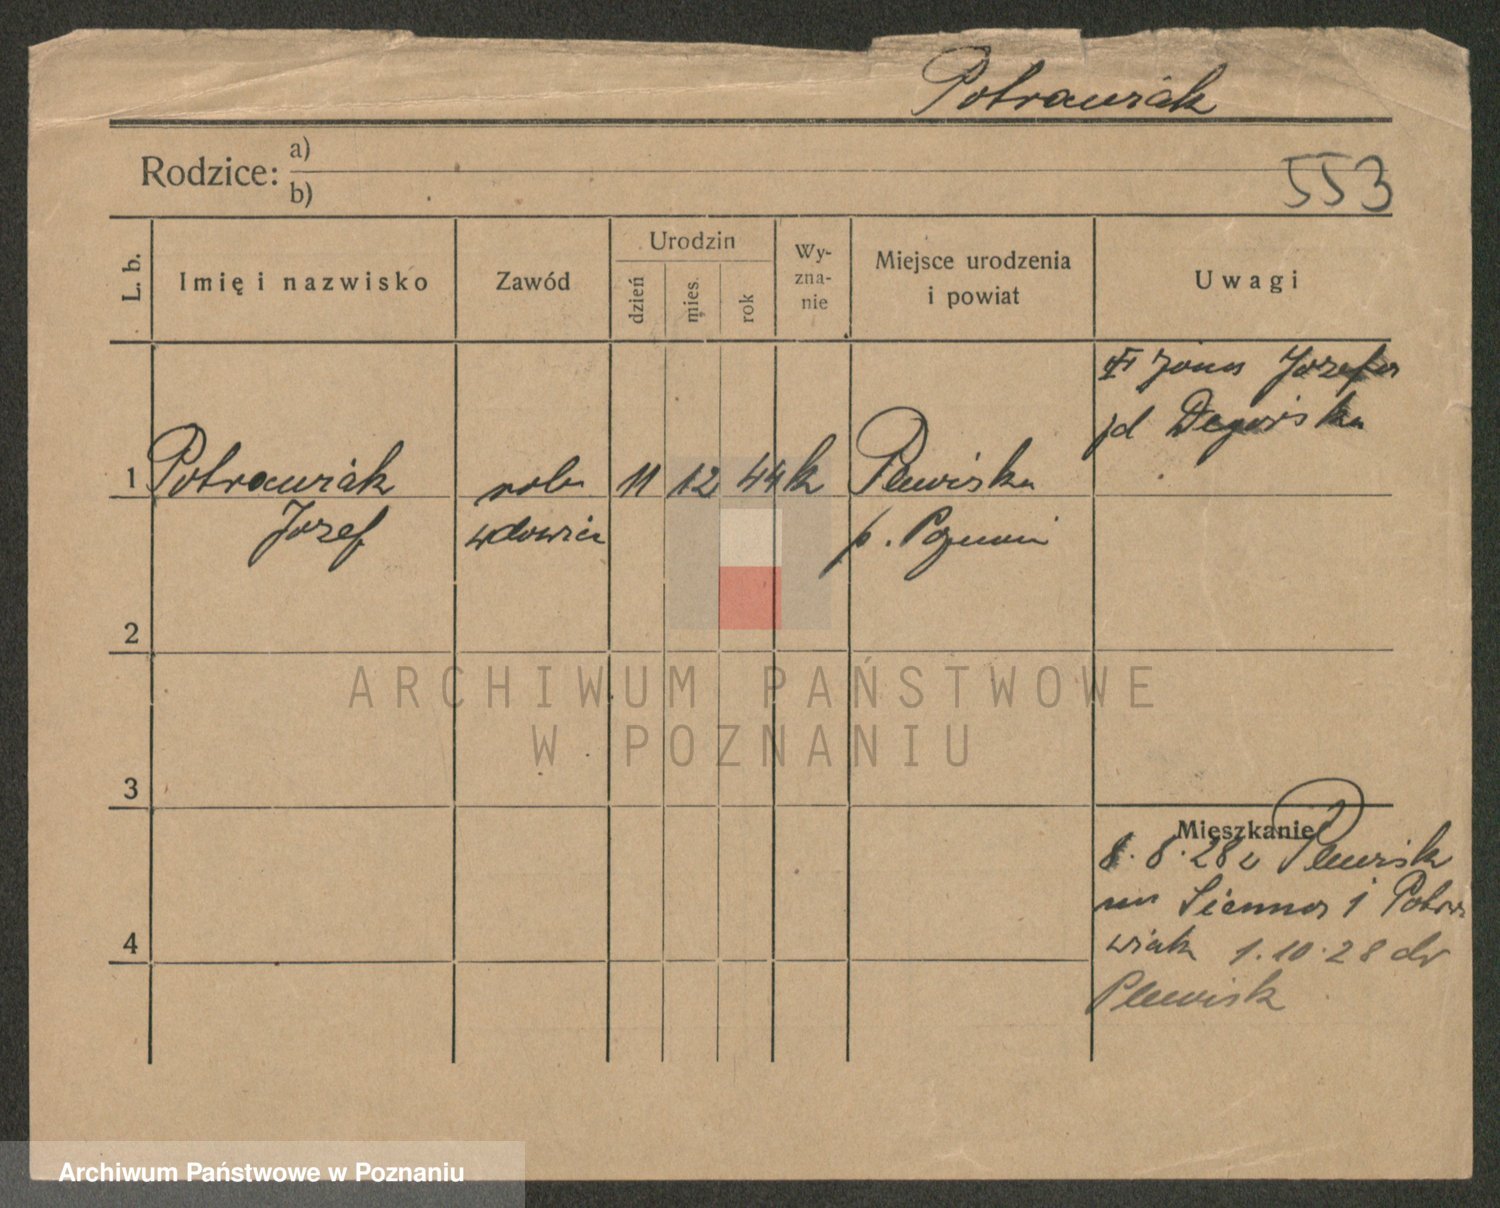 Potrawiak
Rodzice: a)
b)
553
L. b.
Imię i nazwisko
Zawód
Urodzin
dzień
mies.
rok
Wy-
zna-
nie
Miejsce urodzenia
i powiat
Uwagi
żona Józefa
Degórska
1 Potrawiak rob 11 12 44 k Plewiska
Józef wdowiec p. Poznań
2
3
4
Mieszkanie
8.8.28 z Plewisk
na Sienna 1 Potra
wiak 1.10.28 do
Plewisk
ARCHIWUM PAŃSTWOWE
W POZNANIU
Archiwum Państwowe w Poznaniu